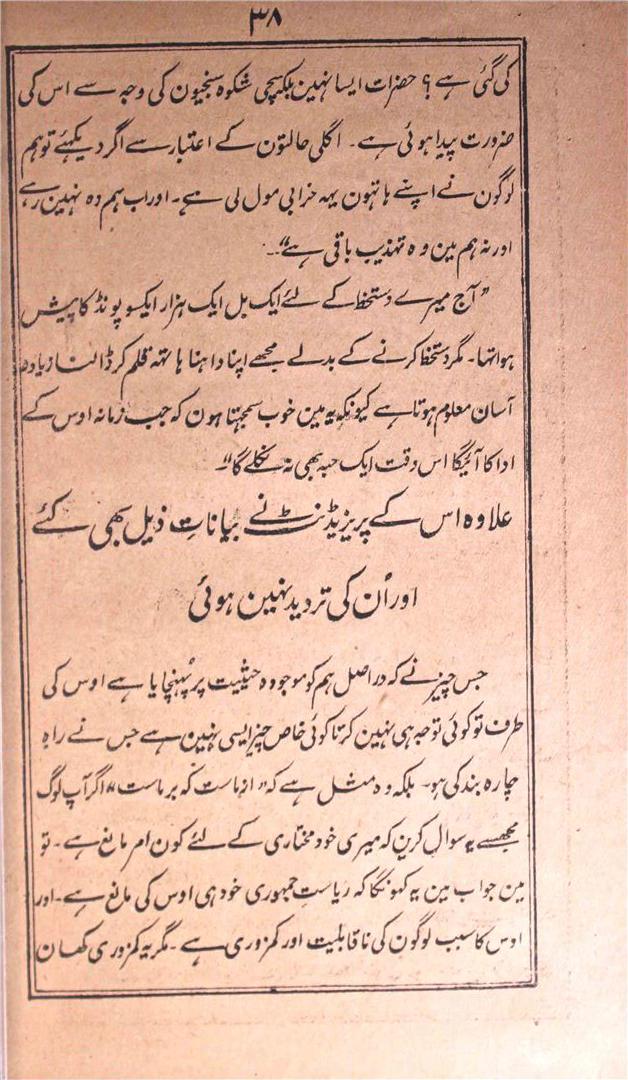 ۳۸
کی گئی ہے؟ حضرات ایسا نہین بلکہ سچی شکوہ سنجیون کی وجہ سے اس کی
ضرورت پیدا ہوئی ہے۔ اگلی حالتون کے اعتبار سے اگر دیکہئے تو ہم
لوگون نے اپنے ہاتہون یہہ خرابی مول لی ہے۔ اور اب ہم وہ نہین رہے
اور نہ ہم مین وہ تہذیب باقی ہے“۔
”آج میرے دستخط کے لئے ایک بل ایک ہزار ایکسو پونڈ کا پیش
ہوا تہا۔ مگر دستخط کرنے کے بدلے مجھے اپنا داہنا ہاتہہ قلم کر ڈالنا زیادہ
آسان معلوم ہوتا ہے کیونکہ یہ مین خوب سمجہتا ہون کہ جب زمانہ اوس کے
ادا کا آئیگا اس وقت ایک حبہ بھی نہ نکلے گا“۔
علاوہ اس کے پریزیڈنٹ نے بیاناتِ ذیل بھی کئے
اور اُن کی تردید نہین ہوئی
جس چیز نے کہ در اصل ہم کو موجودہ حیثیت پر پُہنچایا ہے اوس کی
طرف تو کوئی توجہ ہی نہین کرتا کوئی خاص چیز ایسی نہین ہے جس نے راہ
چارہ بند کی ہو۔ بلکہ وہ مثل ہے کہ ”از ماست کہ بر ماست“ اگر آپ لوگ
مجھسے یہ سوال کرین کہ میری خود مختاری کے لئے کون امر مانع ہے۔ تو
مین جواب مین یہ کہونگا کہ ریاست جمہوری خود ہی اوس کی مانع ہے۔ اور
اوس کا سبب لوگون کی ناقابلیت اور کمزوری ہے۔ مگر یہ کمزوری کہان